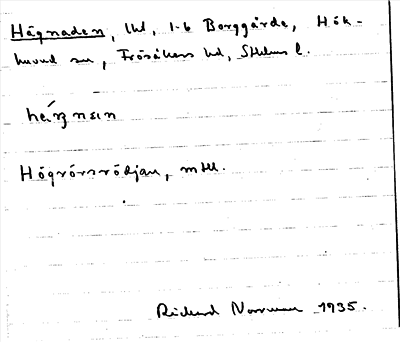 Hägnaden, lhl, 1-6 Borggärde, Hök-
huvud sn, Frösåkers hd, Sthlms l.
Högrörsrödjan, mtl.
Richard Norrman 1935.